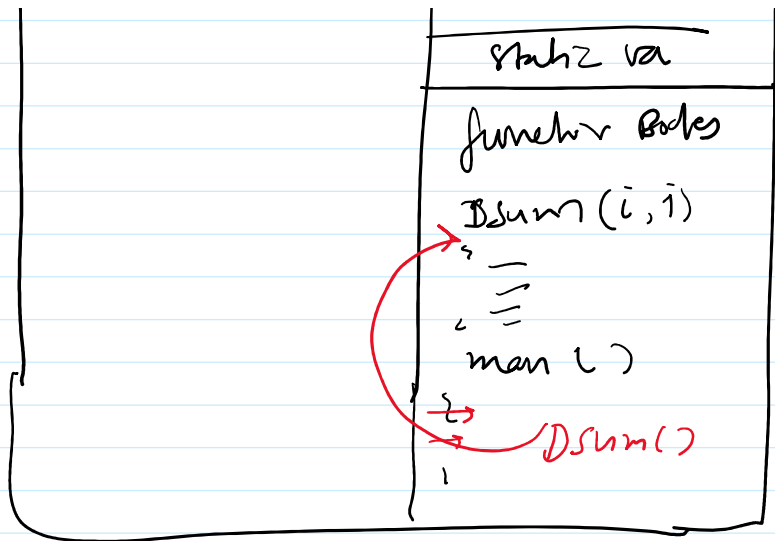 static va
function Bodies
Dsum(i,j)
{
}
main()
{
Dsum()
}